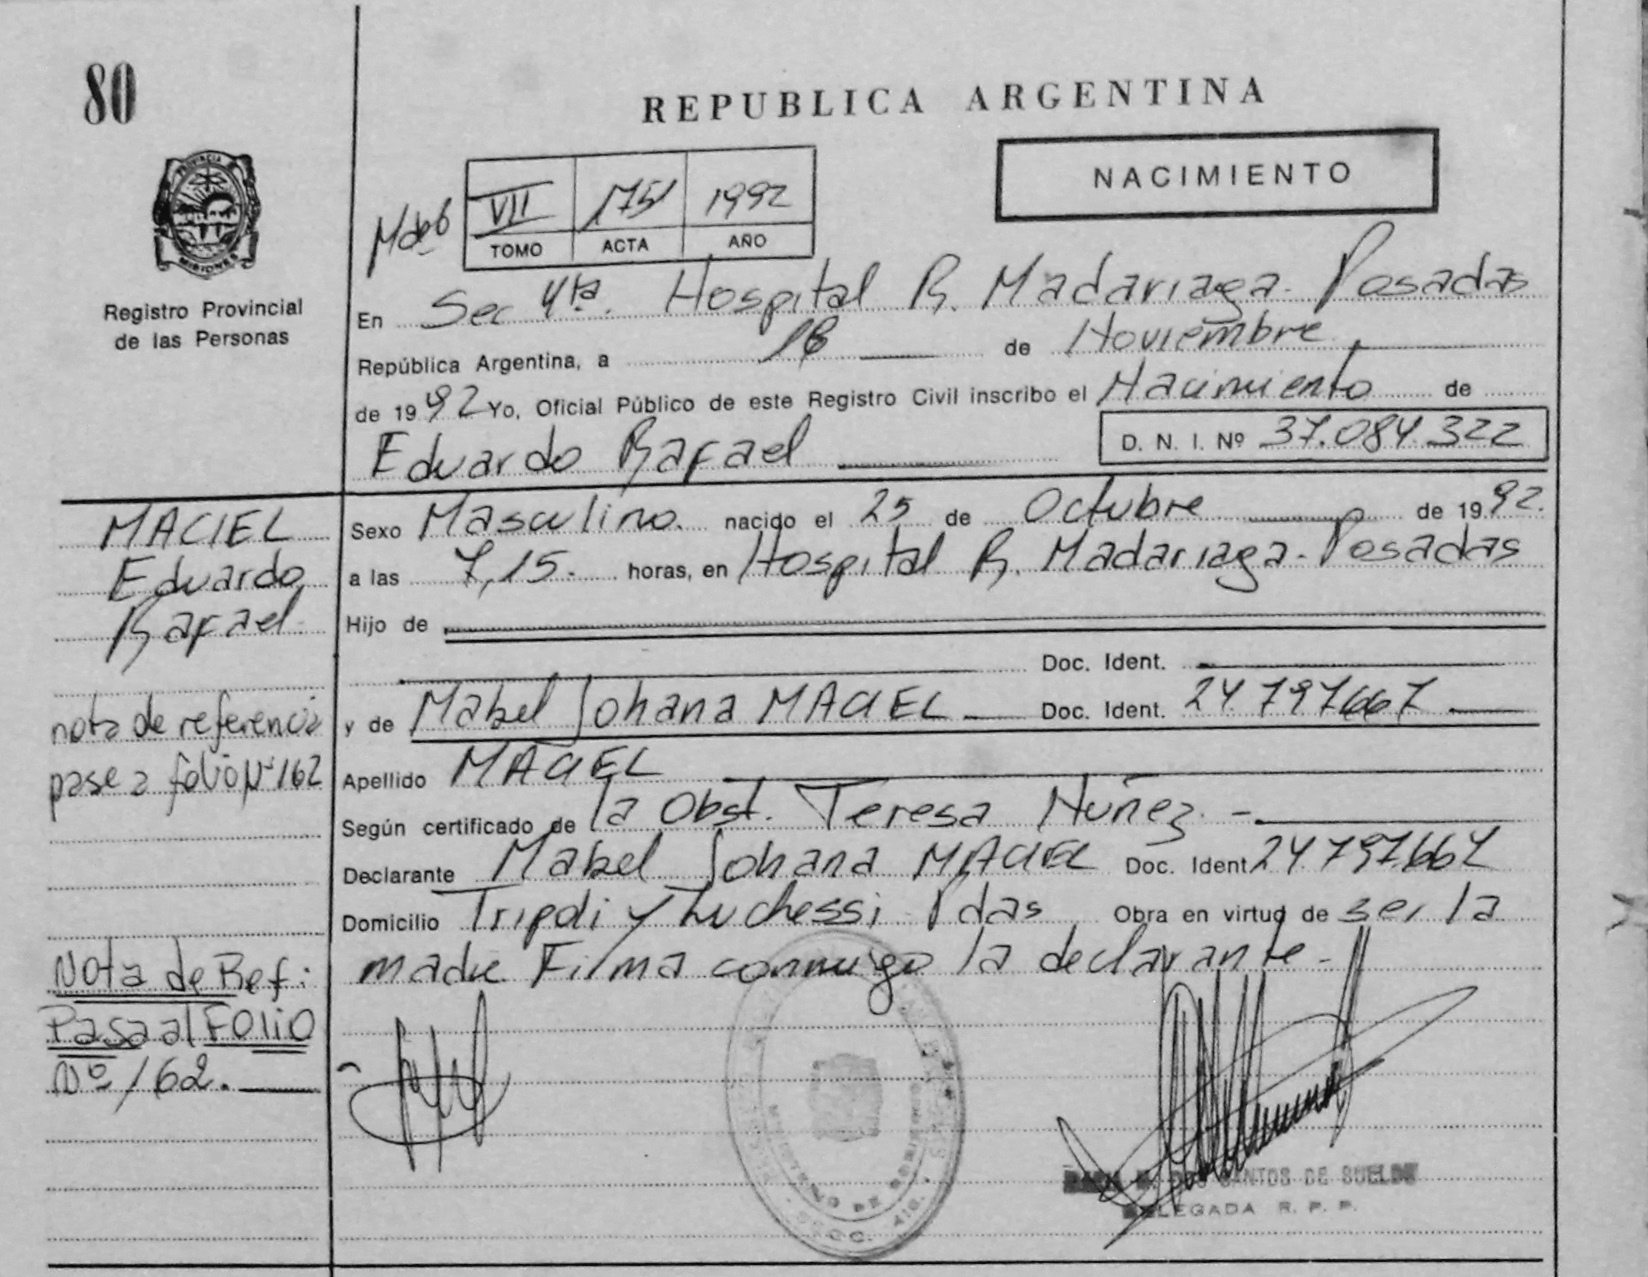 80
REPUBLICA ARGENTINA
NACIMIENTO
PROVINCIA
MISIONES
Registro Provincial
de las Personas
VII 1751 1992
TOMO ACTA AÑO
En Sec 4ta. Hospital R. Madariaga - Posadas
República Argentina, a 18 de Noviembre
de 1992 Yo, Oficial Público de este Registro Civil inscribo el Nacimiento de
Eduardo Rafael
D. N. I. Nº 37.084.322
MACIEL
Eduardo
Rafael
Sexo Masculino. nacido el 25 de Octubre de 1992.
a las 7,15. horas, en Hospital R. Madariaga - Posadas
Hijo de
Doc. Ident.
y de Mabel Johana MACIEL Doc. Ident. 24.797.667
Apellido MACIEL
Según certificado de la Obst. Teresa Núñez. -
Declarante Mabel Johana MACIEL Doc. Ident 24.797.667
Domicilio Tripoli y Luchessi Pdas Obra en virtud de ser la
madre Firma conmigo la declarante -
nota de referencia
pase a folio Nº 162
Nota de Ref:
Pasa al FOLIO
Nº 162.
MINISTERIO DE GOBIERNO
SANTOS DE SUELDO
DELEGADA R. P. P.